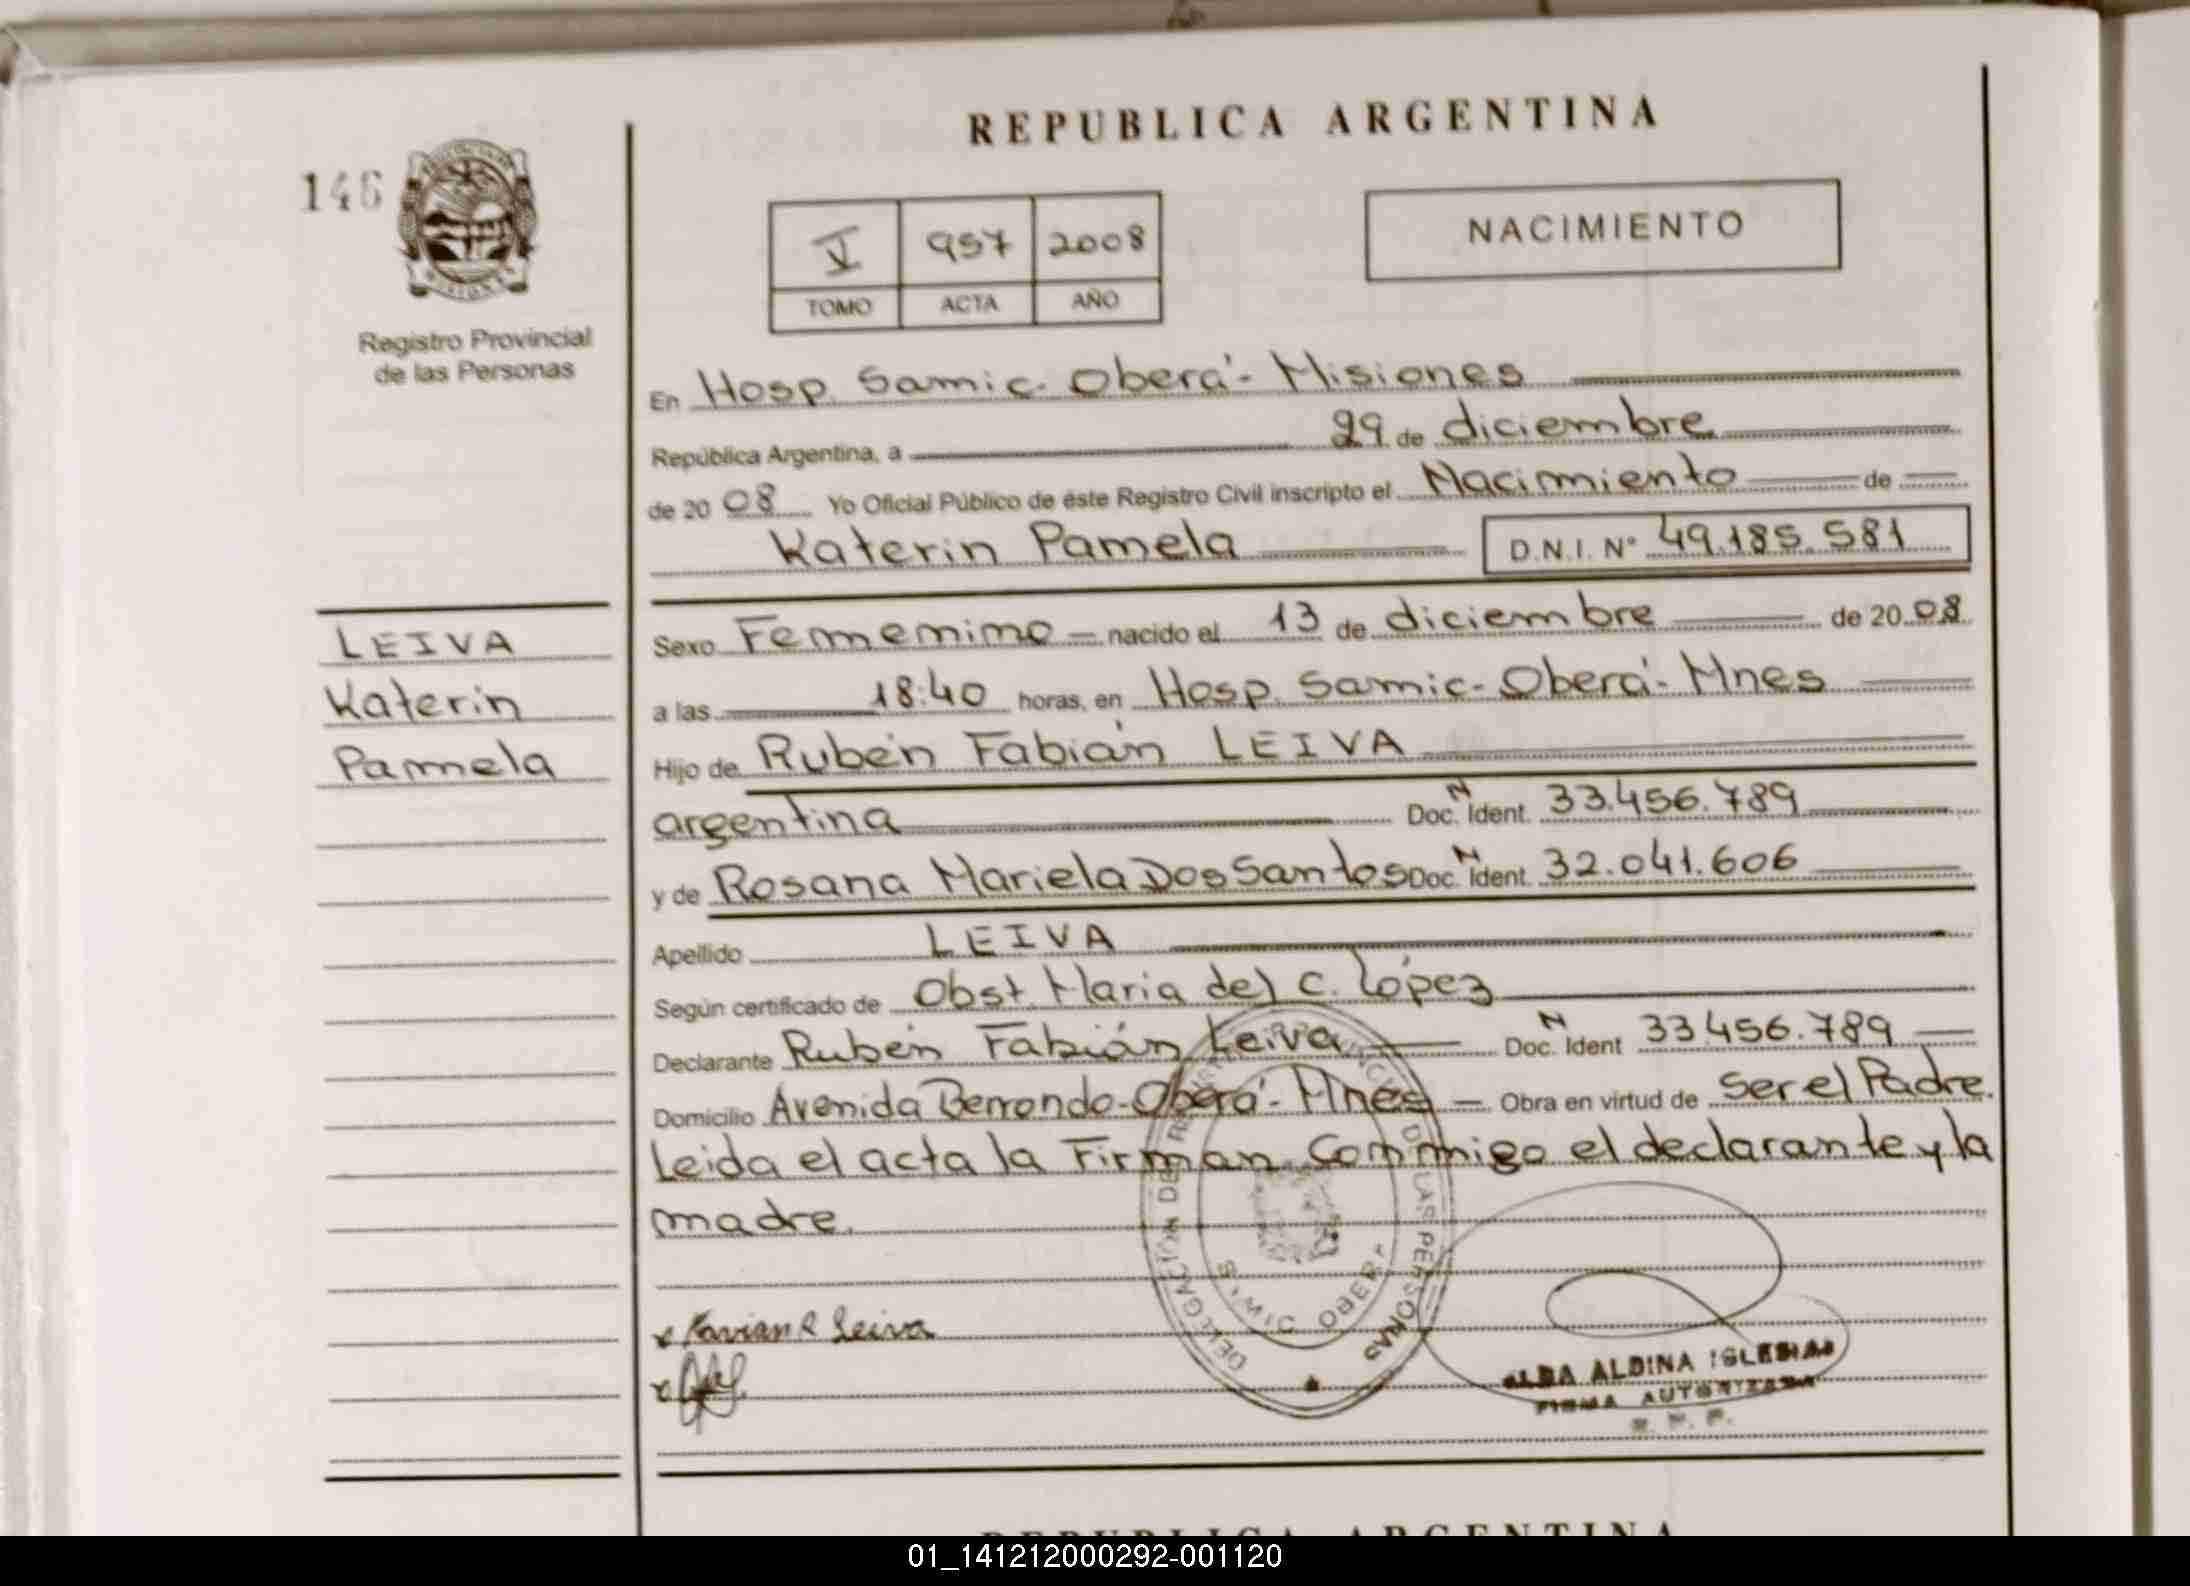 REPUBLICA ARGENTINA
146
NACIMIENTO
V 957 2008
TOMO ACTA AÑO
Registro Provincial
de las Personas
En Hosp. Samic. Oberá - Misiones
República Argentina, a 29 de diciembre
de 2008 Yo Oficial Público de éste Registro Civil inscripto el Nacimiento de
Katerin Pamela D.N.I. Nº 49.185.581
LEIVA
Katerin
Pamela
Sexo Femenino nacido el 13 de diciembre de 2008
a las 18:40 horas, en Hosp. Samic - Oberá - Mnes
Hijo de Rubén Fabián LEIVA
argentina Doc. N Ident. 33.456.789
y de Rosana Mariela Dos Santos Doc. N Ident. 32.041.606
Apellido LEIVA
Según certificado de Obst. Maria del C. López
Declarante Rubén Fabián Leiva Doc. N Ident 33.456.789
Domicilio Avenida Berrondo - Oberá - Mnes Obra en virtud de Ser el Padre.
Leida el acta la Firman Conmigo el declarante y la
madre.
x Favian R Leiva
x
DELEGACION DEL REGISTRO PROVINCIAL DE LAS PERSONAS
OBERA
ALBA ALDINA IGLESIAS
FIRMA AUTORIZADA
R. P. P.
REPUBLICA ARGENTINA
01_141212000292-001120